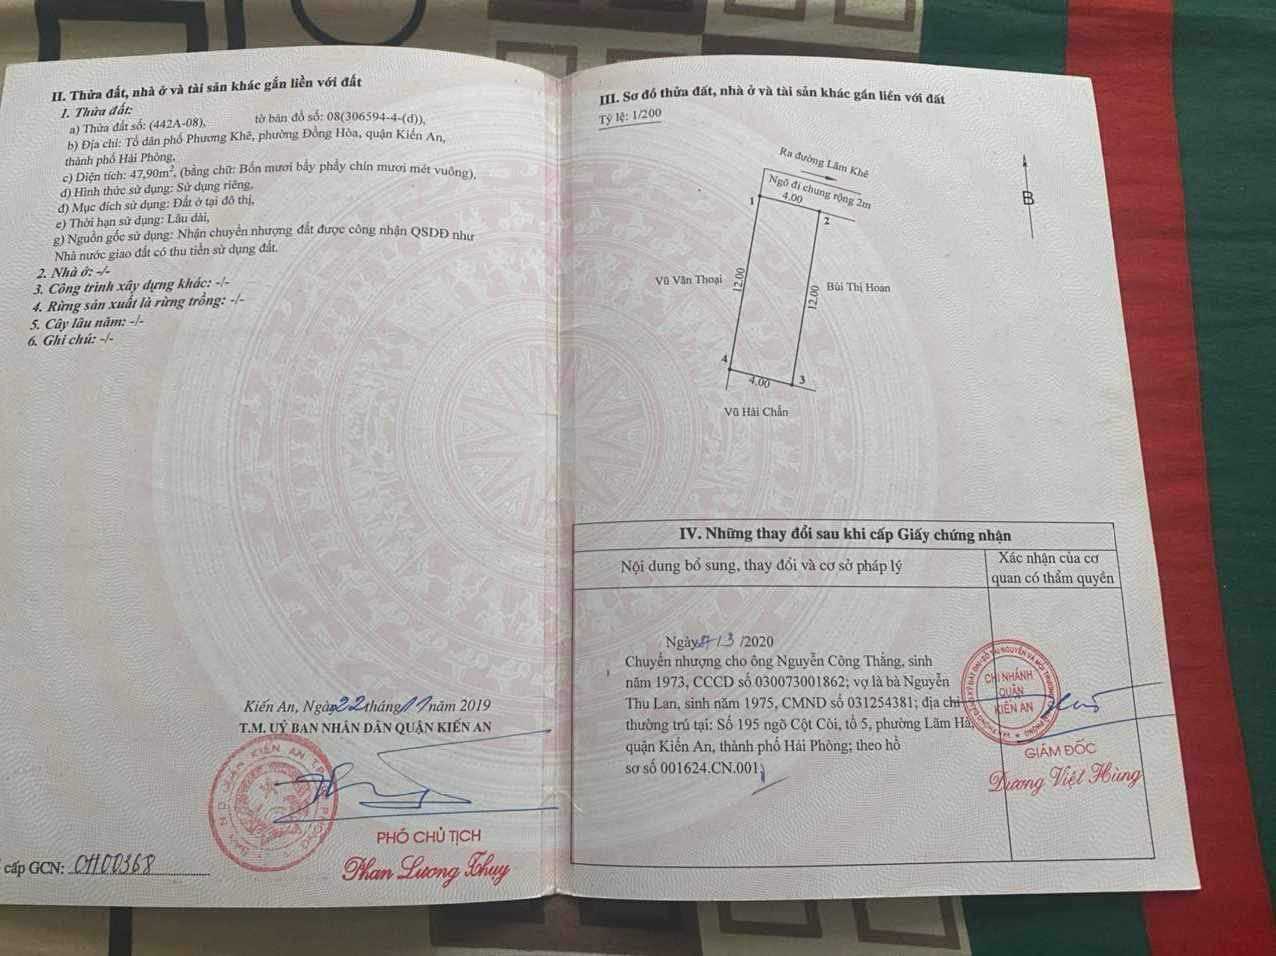 II. Thửa đất, nhà ở và tài sản khác gắn liền với đất
1. Thửa đất:
a) Thửa đất số: (442A-08), tờ bản đồ số: 08(306594-4-(d)),
b) Địa chỉ: Tổ dân phố Phương Khê, phường Đồng Hòa, quận Kiến An,
thành phố Hải Phòng,
c) Diện tích: 47,90m², (bằng chữ: Bốn mươi bảy phẩy chín mươi mét vuông),
d) Hình thức sử dụng: Sử dụng riêng,
đ) Mục đích sử dụng: Đất ở tại đô thị,
e) Thời hạn sử dụng: Lâu dài,
g) Nguồn gốc sử dụng: Nhận chuyển nhượng đất được công nhận QSDĐ như
Nhà nước giao đất có thu tiền sử dụng đất.
2. Nhà ở: -/-
3. Công trình xây dựng khác: -/-
4. Rừng sản xuất là rừng trồng: -/-
5. Cây lâu năm: -/-
6. Ghi chú: -/-
Kiến An, Ngày 22 tháng 11 năm 2019
T.M. UỶ BAN NHÂN DÂN QUẬN KIẾN AN
PHÓ CHỦ TỊCH
Phan Lương Thuy
cấp GCN: CH00368
III. Sơ đồ thửa đất, nhà ở và tài sản khác gắn liền với đất
Tỷ lệ: 1/200
Ra đường Lãm Khê
Ngõ đi chung rộng 2m
4.00
1
2
B
Vũ Văn Thoại
12.00
12.00
Bùi Thị Hoan
4
4.00
3
Vũ Hải Chẩn
IV. Những thay đổi sau khi cấp Giấy chứng nhận
Nội dung bổ sung, thay đổi và cơ sở pháp lý
Xác nhận của cơ
quan có thẩm quyền
Ngày /3 /2020
Chuyển nhượng cho ông Nguyễn Công Thắng, sinh
năm 1973, CCCD số 030073001862; vợ là bà Nguyễn
Thu Lan, sinh năm 1975, CMND số 031254381; địa chỉ
thường trú tại: Số 195 ngõ Cột Còi, tổ 5, phường Lãm Hà,
quận Kiến An, thành phố Hải Phòng; theo hồ
sơ số 001624.CN.001
CHI NHÁNH
QUẬN
KIẾN AN
GIÁM ĐỐC
Dương Việt Hùng